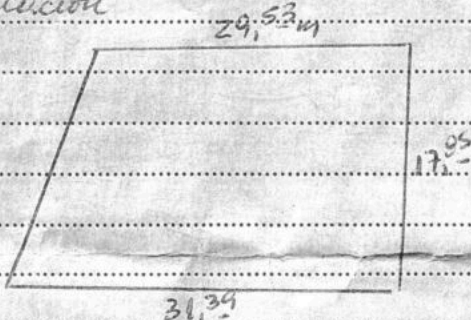 29,53m
17,95
31,39